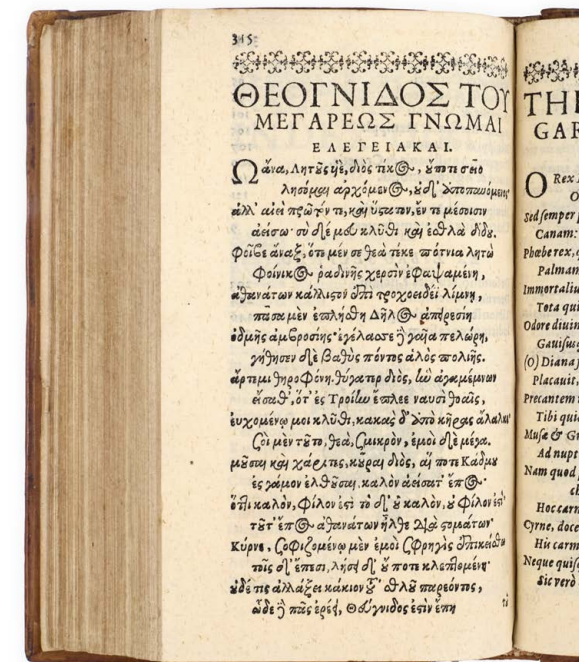 315
ΘΕΟΓΝΙΔΟΣ ΤΟΥ
ΜΕΓΑΡΕΩΣ ΓΝΩΜΑΙ
ΕΛΕΓΕΙΑΚΑΙ.
Ὦ ἄνα, Λητοῦς υἱὲ, διὸς τέκος, οὔποτε σεῖο
λήσομαι ἀρχόμενος, οὐδ' ἀποπαυόμενος
ἀλλ' αἰεὶ πρῶτόν τε, καὶ ὕστατον, ἔν τε μέσοισιν
ἀείσω· σὺ δέ μοι κλῦθι καὶ ἐσθλὰ δίδου.
Φοῖβε ἄναξ, ὅτε μέν σε θεὰ τέκε πότνια λητὼ
Φοίνικος ῥαδινῆς χερσὶν ἐφαψαμένη,
ἀθανάτων κάλλιστον ἐπὶ τροχοειδέϊ λίμνῃ,
πᾶσα μὲν ἐπλήσθη Δῆλος ἀπειρεσίη
ὀδμῆς ἀμβροσίης· ἐγέλασσε δὲ γαῖα πελώρη,
γήθησεν δὲ βαθὺς πόντος ἁλὸς πολιῆς.
ἄρτεμι θηροφόνη, θύγατερ διὸς, ἣν ἀγαμέμνων
εἵσαθ', ὅτ' ἐς Τροίην ἔπλεε ναυσὶ θοαῖς,
εὐχομένῳ μοι κλῦθι, κακὰς δ' ἀπὸ κῆρας ἄλαλκε
σοὶ μὲν τοῦτο, θεὰ, σμικρὸν, ἐμοὶ δὲ μέγα.
μοῦσαι καὶ χάριτες, κοῦραι διὸς, αἵ ποτε Κάδμου
ἐς γάμον ἐλθοῦσαι, καλὸν ἀείσατ' ἔπος·
ὅττι καλὸν, φίλον ἐστὶ τὸ δ' οὐ καλὸν, οὐ φίλον ἐστὶ
τοῦτ' ἔπος ἀθανάτων ἦλθε διὰ στομάτων·
Κύρνε, σοφιζομένῳ μὲν ἐμοὶ σφρηγὶς ἐπικείσθω
τοῖς δ' ἔπεσι, λήσει δ' οὔποτε κλεπτόμενα·
οὐδέ τις ἀλλάξει κάκιον τοῦ 'σθλοῦ παρεόντος,
ὧδε δὲ πᾶς ἐρεῖ, Θεύγνιδος ἐστὶν ἔπη
O Rex
Sed semper
Canam:
Phœbe rex,
Palmam
Immortaliu
Tota qui
Odore diuin
Gauisus
(O) Diana
Placauit,
Precantem
Tibi quid
Musæ & Gr
Ad nupt
Nam quod
Hoc carm
Cyrne, doce
His carm
Neque quis
Sic verò